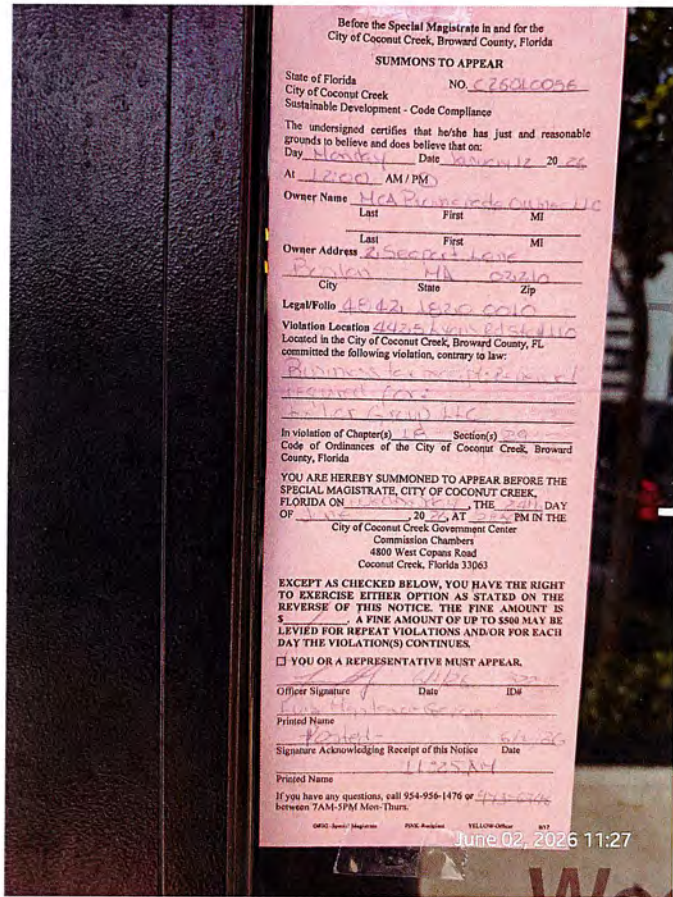 Before the Special Magistrate in and for the
City of Coconut Creek, Broward County, Florida
SUMMONS TO APPEAR
State of Florida NO. C26010056
City of Coconut Creek
Sustainable Development - Code Compliance
The undersigned certifies that he/she has just and reasonable
grounds to believe and does believe that:
Day Monday Date January 12 20 26
At 12:00 AM / PM
Owner Name MCA Promenade Owner LLC
Last First MI
Last First MI
Owner Address 2 Seaport Lane
Boston MA 02210
City State Zip
Legal/Folio 4842 1820 0010
Violation Location 4425 Lyons Rd
Located in the City of Coconut Creek, Broward County, FL
committed the following violation, contrary to law:
Business tax receipt Renewal
required for:
Group LLC
In violation of Chapter(s) Section(s) 29
Code of Ordinances of the City of Coconut Creek, Broward
County, Florida
YOU ARE HEREBY SUMMONED TO APPEAR BEFORE THE
SPECIAL MAGISTRATE, CITY OF COCONUT CREEK,
FLORIDA ON Wednesday, THE 24th DAY
OF June, 20 26, AT PM IN THE
City of Coconut Creek Government Center
Commission Chambers
4800 West Copans Road
Coconut Creek, Florida 33063
EXCEPT AS CHECKED BELOW, YOU HAVE THE RIGHT
TO EXERCISE EITHER OPTION AS STATED ON THE
REVERSE OF THIS NOTICE. THE FINE AMOUNT IS
$ . A FINE AMOUNT OF UP TO $500 MAY BE
LEVIED FOR REPEAT VIOLATIONS AND/OR FOR EACH
DAY THE VIOLATION(S) CONTINUES.
☐ YOU OR A REPRESENTATIVE MUST APPEAR.
Officer Signature Date ID#
Printed Name
Posted
Signature Acknowledging Receipt of this Notice Date
11:25 AM
Printed Name
If you have any questions, call 954-956-1476 or
between 7AM-5PM Mon-Thurs.
ORIG-Special Magistrate PINK-Recipient YELLOW-Officer 8/17
June 02, 2026 11:27